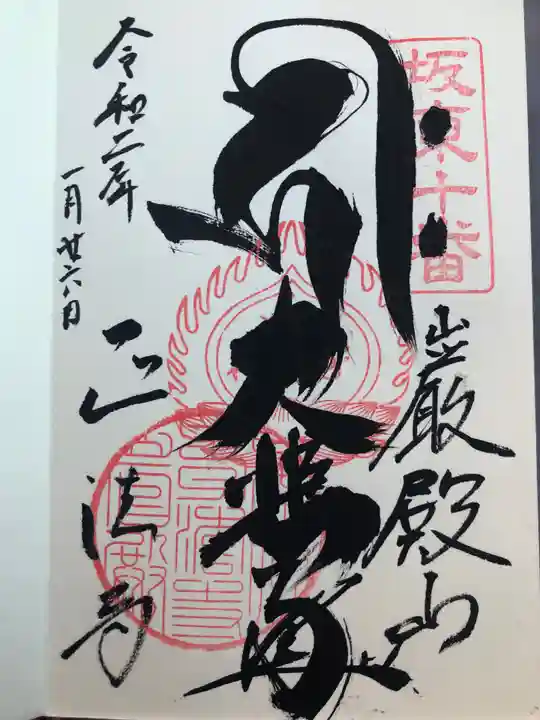 坂東十番
巌殿山
大悲尊
正法寺
令和二年
一月廿六日